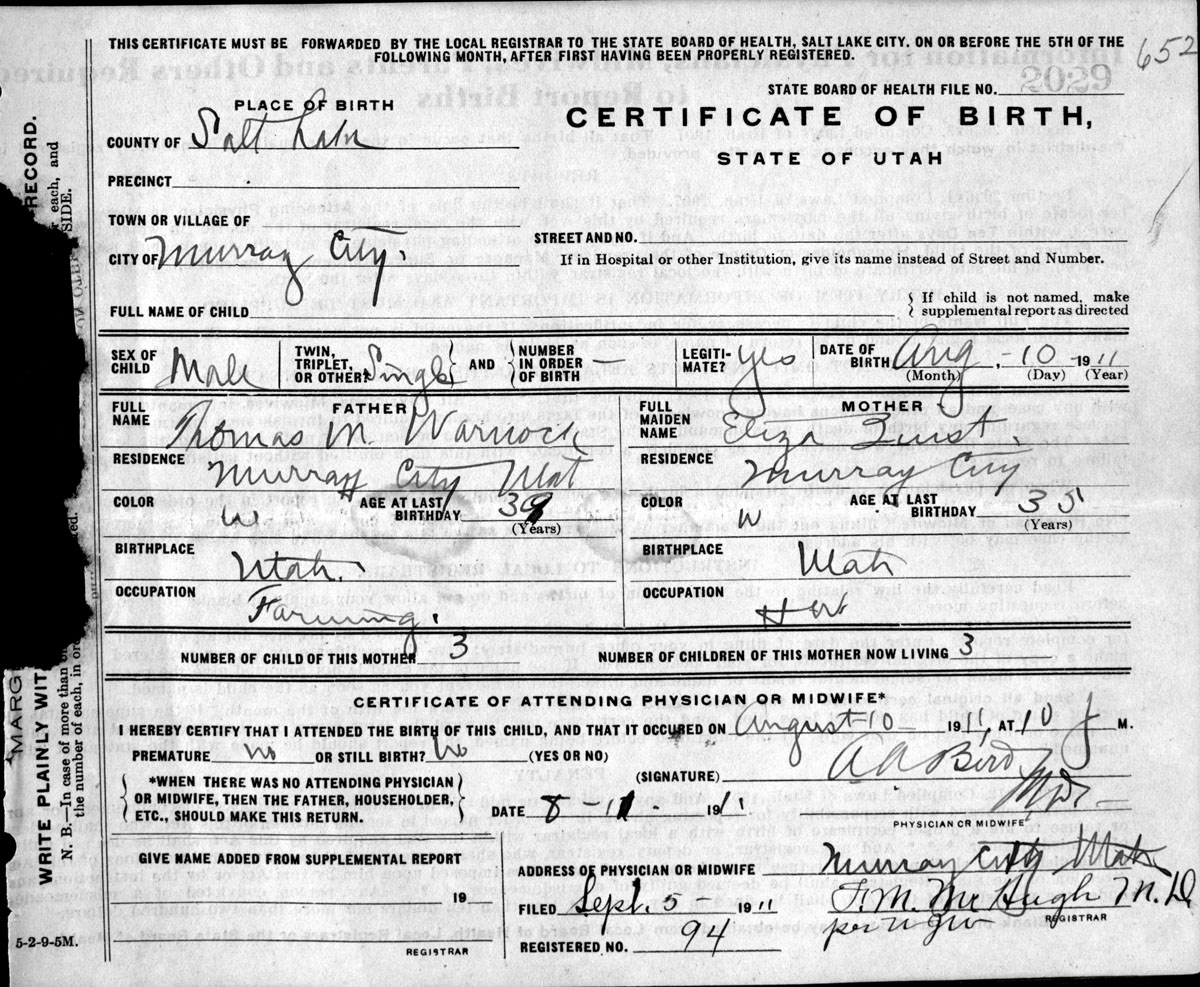 THIS CERTIFICATE MUST BE FORWARDED BY THE LOCAL REGISTRAR TO THE STATE BOARD OF HEALTH, SALT LAKE CITY, ON OR BEFORE THE 5TH OF THE
FOLLOWING MONTH, AFTER FIRST HAVING BEEN PROPERLY REGISTERED.
652
2029
STATE BOARD OF HEALTH FILE NO.
PLACE OF BIRTH
CERTIFICATE OF BIRTH,
STATE OF UTAH
COUNTY OF Salt Lake
PRECINCT
TOWN OR VILLAGE OF
CITY OF Murray City.
STREET AND NO.
If in Hospital or other Institution, give its name instead of Street and Number.
FULL NAME OF CHILD
If child is not named, make
supplemental report as directed
SEX OF CHILD Male
TWIN, TRIPLET, OR OTHER? Single
AND NUMBER IN ORDER OF BIRTH —
LEGITIMATE? yes
DATE OF BIRTH Aug - 10 1911
(Month) (Day) (Year)
FATHER
FULL NAME Thomas M. Warnock
RESIDENCE Murray City Utah
COLOR W AGE AT LAST BIRTHDAY 39
(Years)
BIRTHPLACE Utah.
OCCUPATION Farming.
MOTHER
FULL MAIDEN NAME Eliza Quist.
RESIDENCE Murray City
COLOR W AGE AT LAST BIRTHDAY 35
(Years)
BIRTHPLACE Utah
OCCUPATION
NUMBER OF CHILD OF THIS MOTHER 3
NUMBER OF CHILDREN OF THIS MOTHER NOW LIVING 3
CERTIFICATE OF ATTENDING PHYSICIAN OR MIDWIFE*
I HEREBY CERTIFY THAT I ATTENDED THE BIRTH OF THIS CHILD, AND THAT IT OCCURED ON August 10 1911, AT 10 M.
PREMATURE no OR STILL BIRTH? no (YES OR NO)
(SIGNATURE) A A Bird
MD.
PHYSICIAN OR MIDWIFE
*WHEN THERE WAS NO ATTENDING PHYSICIAN
OR MIDWIFE, THEN THE FATHER, HOUSEHOLDER,
ETC., SHOULD MAKE THIS RETURN.
DATE 8 11 1911
GIVE NAME ADDED FROM SUPPLEMENTAL REPORT
19
REGISTRAR
ADDRESS OF PHYSICIAN OR MIDWIFE Murray City Utah
FILED Sept. 5 1911 T. M. McHugh M.D
REGISTRAR
REGISTERED NO. 94 per
5-2-9-5M.
MARG
WRITE PLAINLY WIT
RECORD.
N. B.—In case of more than on
each, and
the number of each, in ord
SIDE.